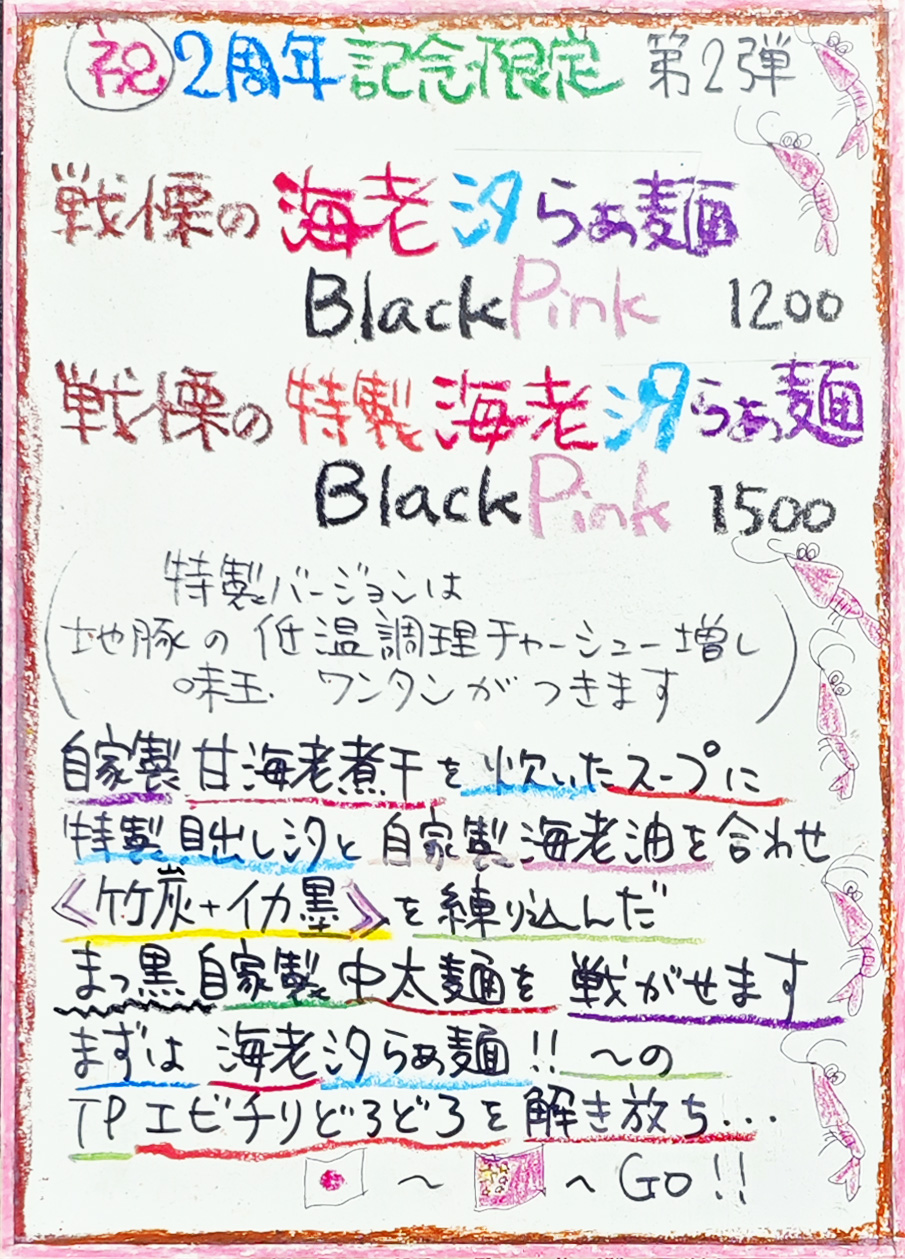 祝2周年記念限定 第2弾
戦慄の海老汐らぁ麺
BlackPink 1200
戦慄の特製海老汐らぁ麺
BlackPink 1500
(特製バージョンは
地豚の低温調理チャーシュー増し
味玉. ワンタンがつきます)
自家製甘海老煮干を炊いたスープに
特製目出し汐と自家製海老油を合わせ
《竹炭+イカ墨》を練り込んだ
まっ黒自家製中太麺を戦がせます
まずは海老汐らぁ麺!! 〜の
TPエビチリどろどろを解き放ち...
〜 へGO!!